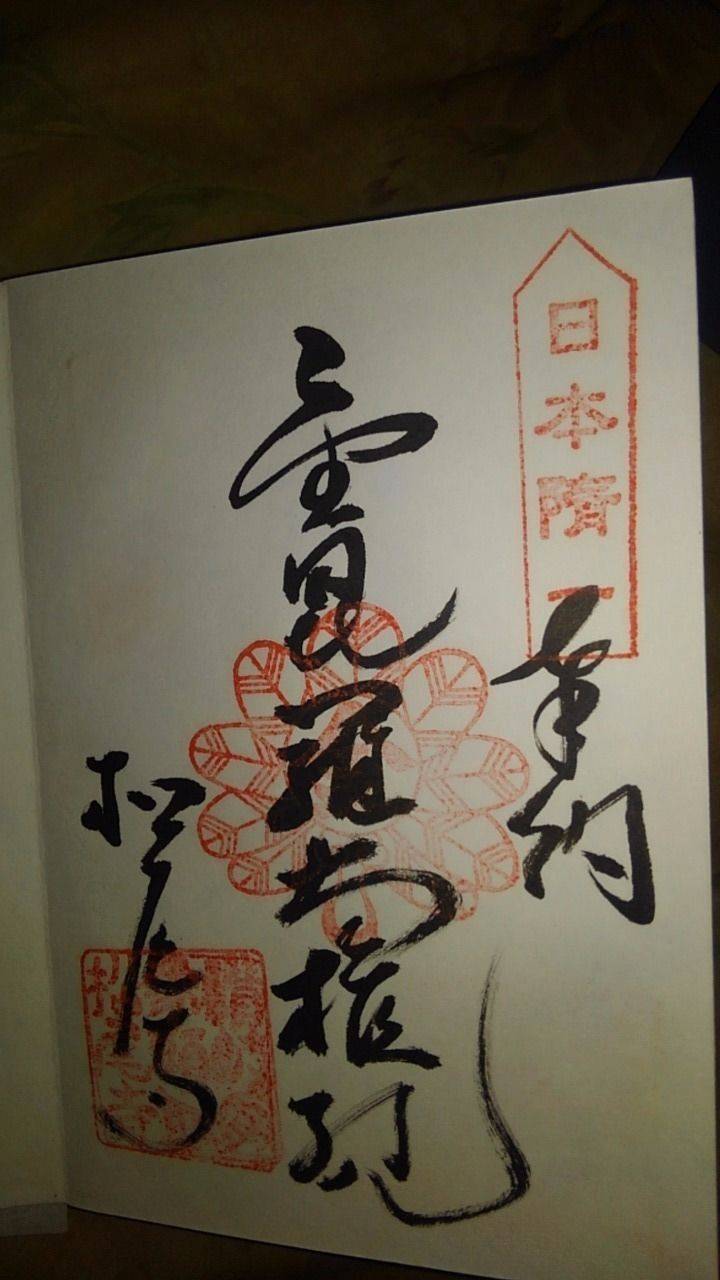 日本隋一
奉納
金毘羅大権現
松尾寺